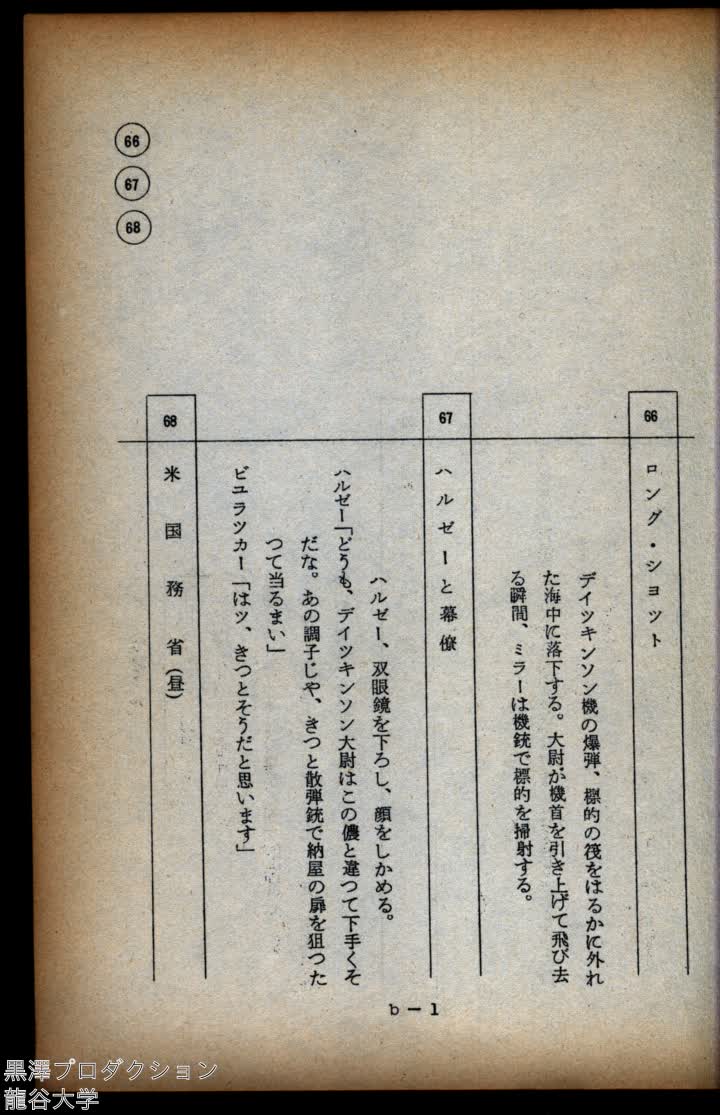 66
67
68
66 ロング・シヨツト
デイツキンソン機の爆弾、標的の筏をはるかに外れ
た海中に落下する。大尉が機首を引き上げて飛び去
る瞬間、ミラーは機銃で標的を掃射する。
67 ハルゼーと幕僚
ハルゼー、双眼鏡を下ろし、顔をしかめる。
ハルゼー「どうも、デイツキンソン大尉はこの儂と違つて下手くそ
だな。あの調子じや、きつと散弾銃で納屋の扉を狙つた
つて当るまい」
ビユラツカー「はツ、きつとそうだと思います」
68 米国務省(昼)
b－1
黒澤プロダクション
龍谷大学